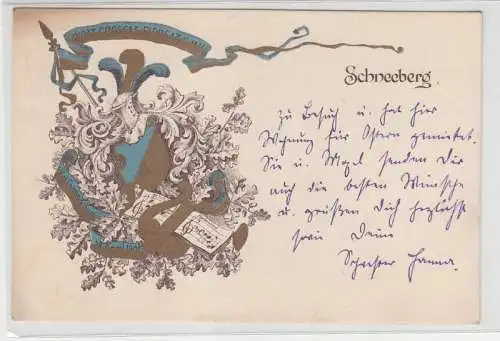 Schneeberg.
zu Besuch u. hat hier
Wohnung für Ostern gemietet.
Sie u. Mogel senden Dir
auch die besten Wünsche
u. grüßen Dich herzlichst
sowie Deine
Schwester Hanna.